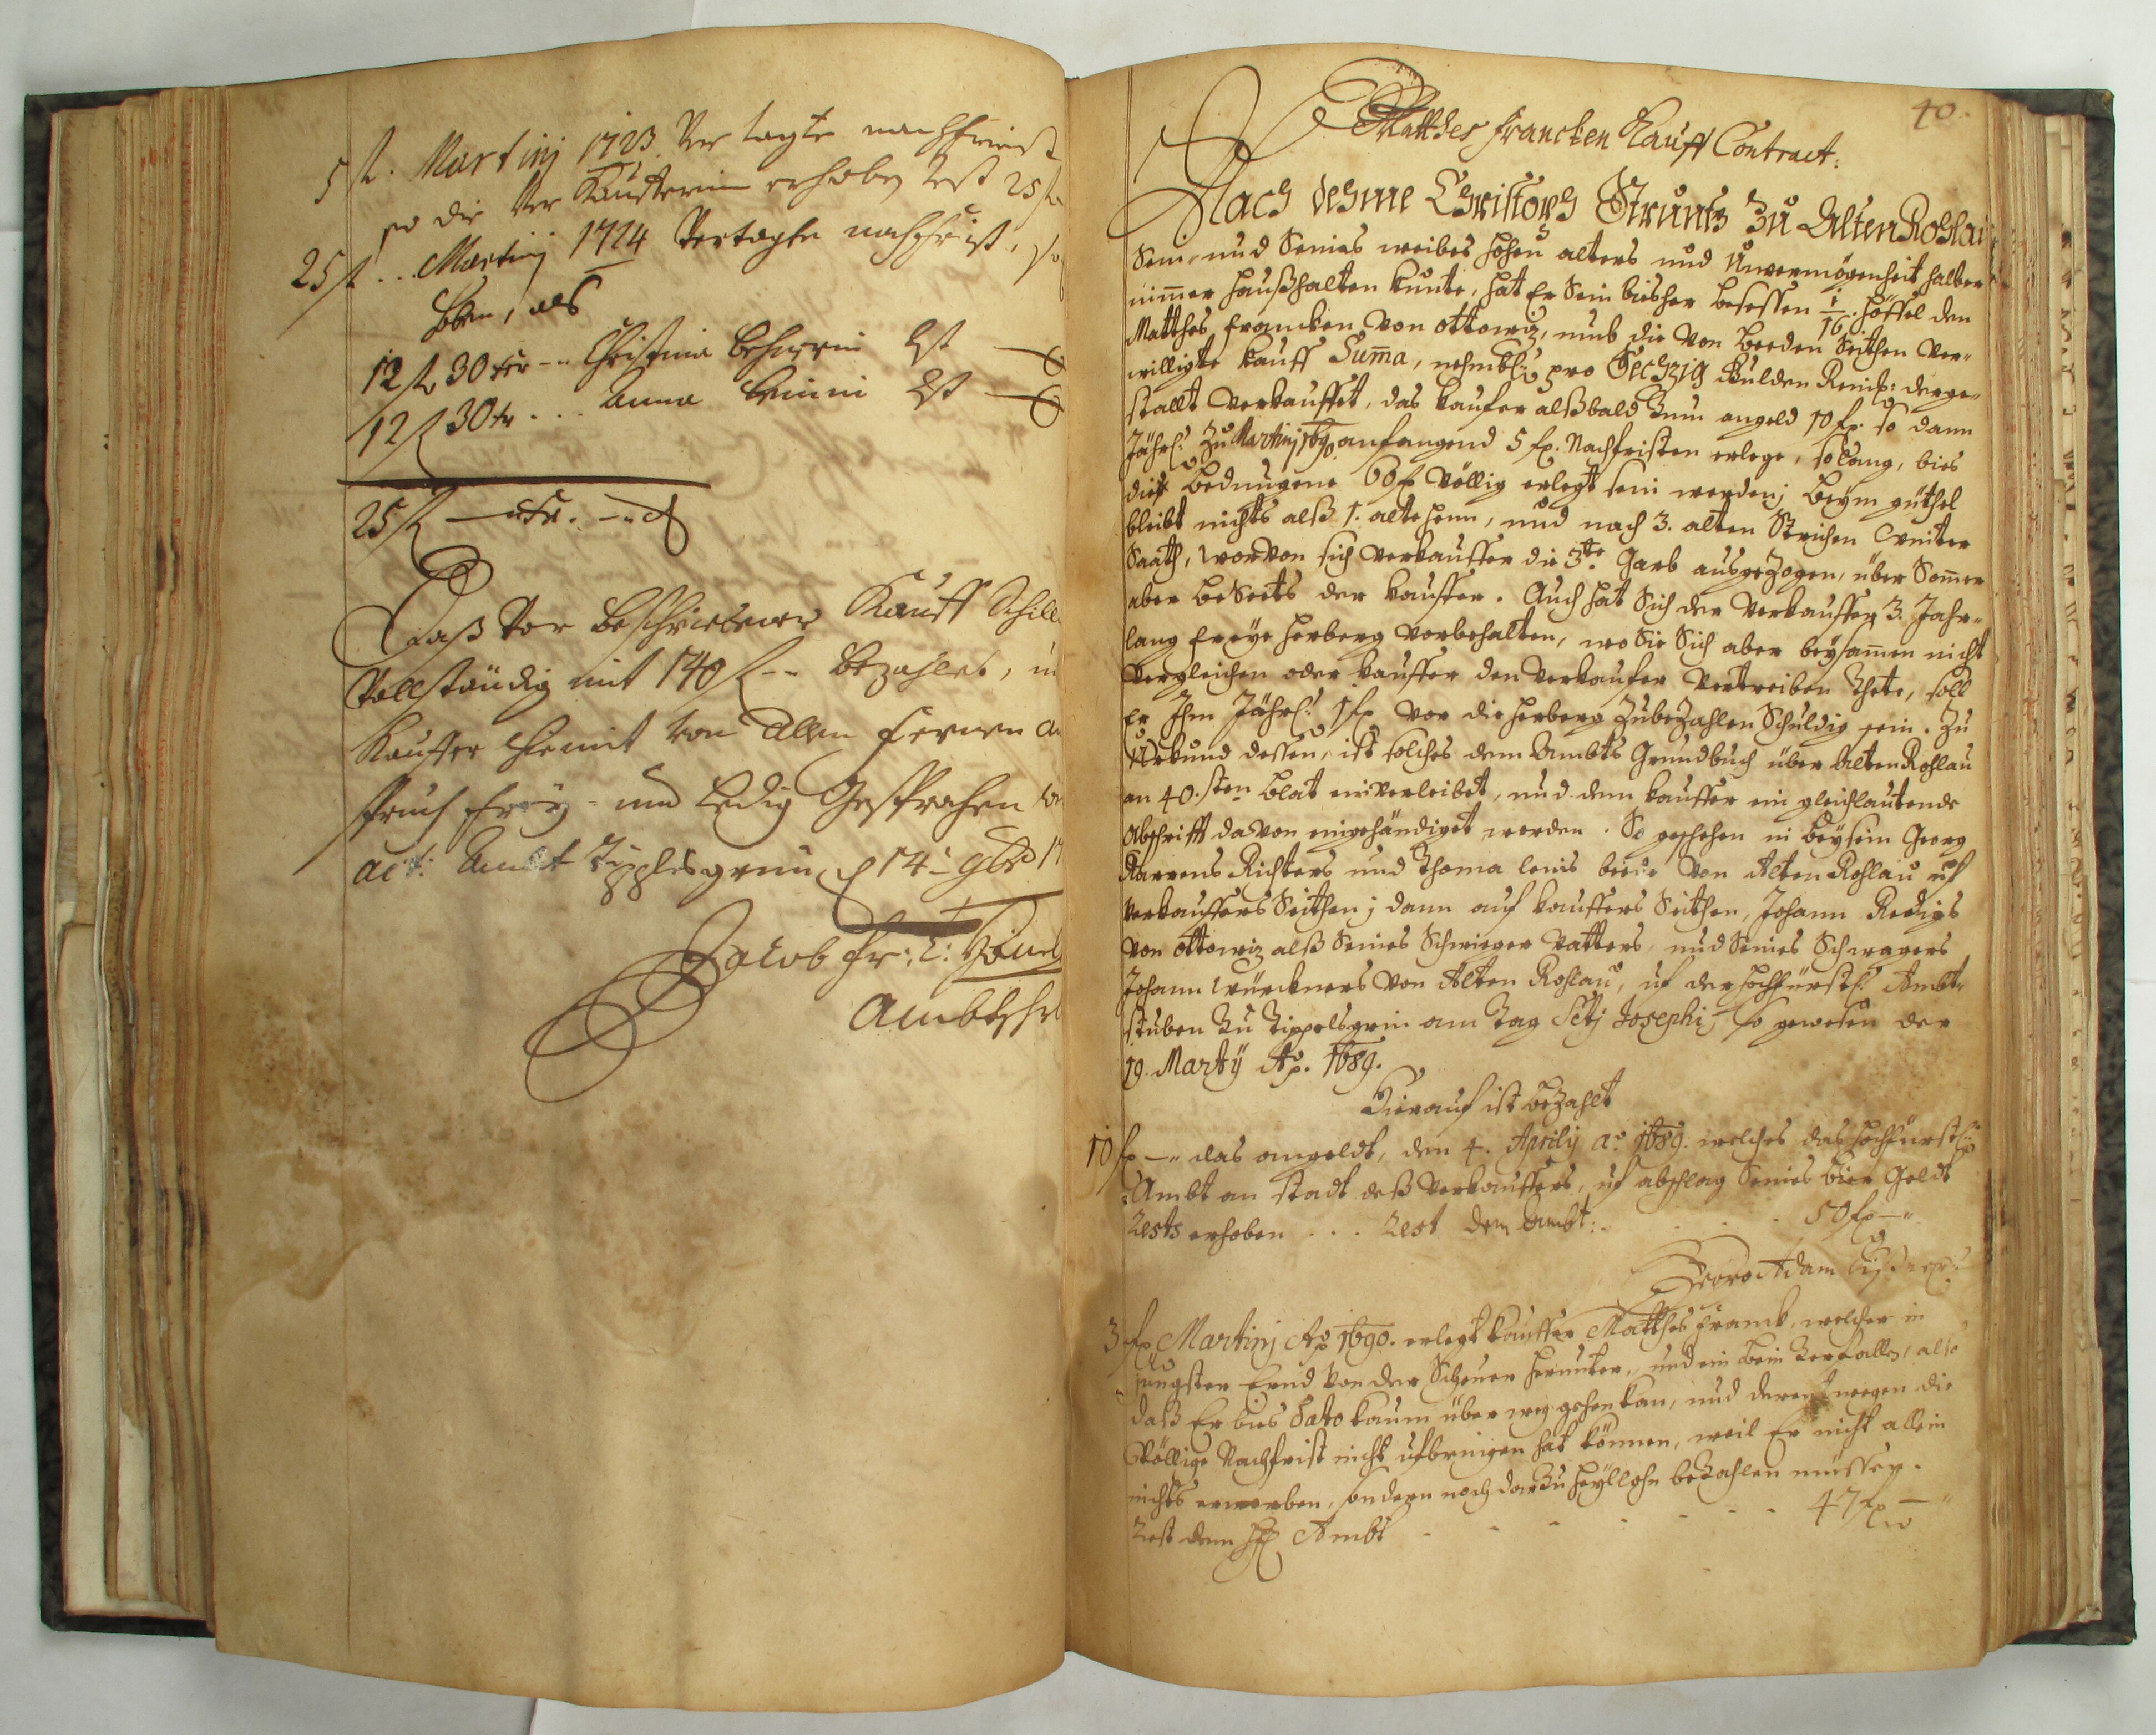 5 fl. Martinj 1723 Ver tagte nachfrist
so die Ver Kaufferin erhoben Rest 25 fl
25 fl .. Martinj 1724 Vertagte nachfrist, so
hoben, als
12 fl 30 kr -- Christina Rest —
12 fl 30 kr ... Anna Rest —
25 fl — kr. — d
Daß Vor Beschriebener Kauff Schill
Vollständig mit 140 fl -- Bezahlet, und
Kauffer hiemit von allen fernern an
spruch frey- und Ledig Gesprochen
act: Ambt Tipplesgrün d 14: 9br 17
Jacob Fr:
Ambtschr
40.
Matthes Francken Kauff Contract:
Nach dehme Christoph Struntz Zu Alten Rohlau
Sein, und Seines weibes hohen alters und Unvermögenheit halber
nimmer haußhalten kunte, hat Er Sein bishero besessen 1/16 höffel den
Matthes Francken Von ottowiz, umb die Von beeden Seithen Ver-
willigte Kauff Summa, nehmbl: pro Sechzig Gulden Reinl: derge-
stallt Verkauffet, das kaufer alßbald Zum angeld 10 fl. so dann
Jährl: Zu Martinj 1690 anfangend 5 fl. Nachfristen erlege, solang, bies
die bedungene 60 fl Völlig erlegt sein werden; beym güthel
bleibt nichts alß 1. alte henn, und nach 3. alten Strichen winter
Saath, worvon sich Verkauffer die 3te Garb ausgezogen, über Sommer
aber beseets der kauffer. Auch hat Sich der Verkauffer 3. Jahr-
lang Freye herberg vorbehalten, wo Sie Sich aber beysammen nicht
Vergleichen oder kauffer den Verkaufer Vertreiben thete, soll
Er Ihm Jährl: 1 fl vor die herberg Zubezahlen Schuldig sein. Zu
Uhrkund dessen, ist solches dem Ambts Grundbuch über Alten Rohlau
an 40.sten blat einverleibet, und dem kauffer ein gleichlautende
Abschrifft davon eingehändiget worden. So geschehen in beysein Georg
Richters und Thoma lenis beede Von Alten Rohlau uf
Verkauffers Seithen; dann auf kauffers Seithen, Johann
Von ottowiz alß Seines Schwieger Vatters, und Seines Schwagers
Johann Würckners Von Alten Rohlau, uf der hochfürstl: Ambt-
stuben Zu Tippelsgrün am Tag Scti Josephi, so gewesen der
19. Martij Ao. 1689.
Hierauf ist bezahlt
10 fl —" das angeldt, den 4. Aprily ao 1689. welches das hochfürstl:
Ambt an statt deß Verkauffers, uf abschlag Seines bier Geldt
Rests erhoben ... Rest dem Ambt: . . . 50 fl —"
Georg Adam
3 fl Martinj Ao 1690. erlegt kauffer Matthes Franck, welcher in
jüngster Ernd Von der Scheuer herunter, und ein bein Zerfallen, also
daß Er bies Dato kaum über weg gehen kan, und derentwegen die
Völlige Nachfrist nicht ufbringen hat können, weil Er nicht allein
nichts erworben, sondern noch darzu heyllohn bezahlen müssen.
Rest dem hfl Ambt - - - - - - - 47 fl —"